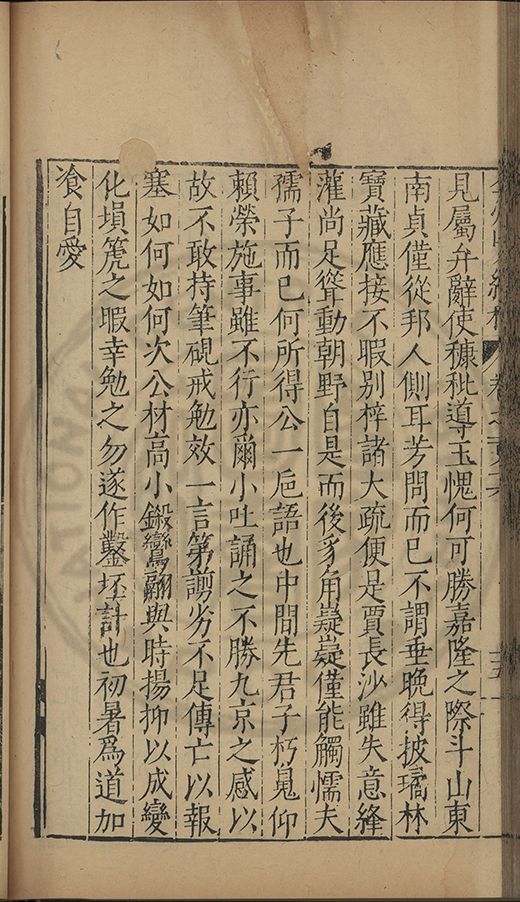 卷之一百
見屬弁辭使穅秕導玉愧何可勝嘉隆之際斗山東
南貞僅從邦人側耳芳問而已不謂垂晩得披璚林
寶藏應接不暇别梓諸大疏便足賈長沙雖失意絳
灌尚足聳動朝野自是而後豸角嶷嶷僅能觸懦夫
孺子而已何所得公一巵語也中間先君子朽䰟仰
賴榮施事雖不行亦爾小吐誦之不勝九京之感以
故不敢持筆硯戒勉效一言第謭劣不足傳亡以報
塞如何如何次公材高小鎩鸞翮與時揚抑以成變
化塤箎之暇幸勉之勿遂作鑿坏計也初暑爲道加
飡自愛